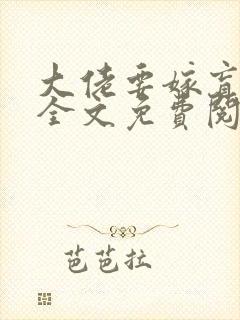 大佬要嫁盲
全文免费阅
芭芭拉